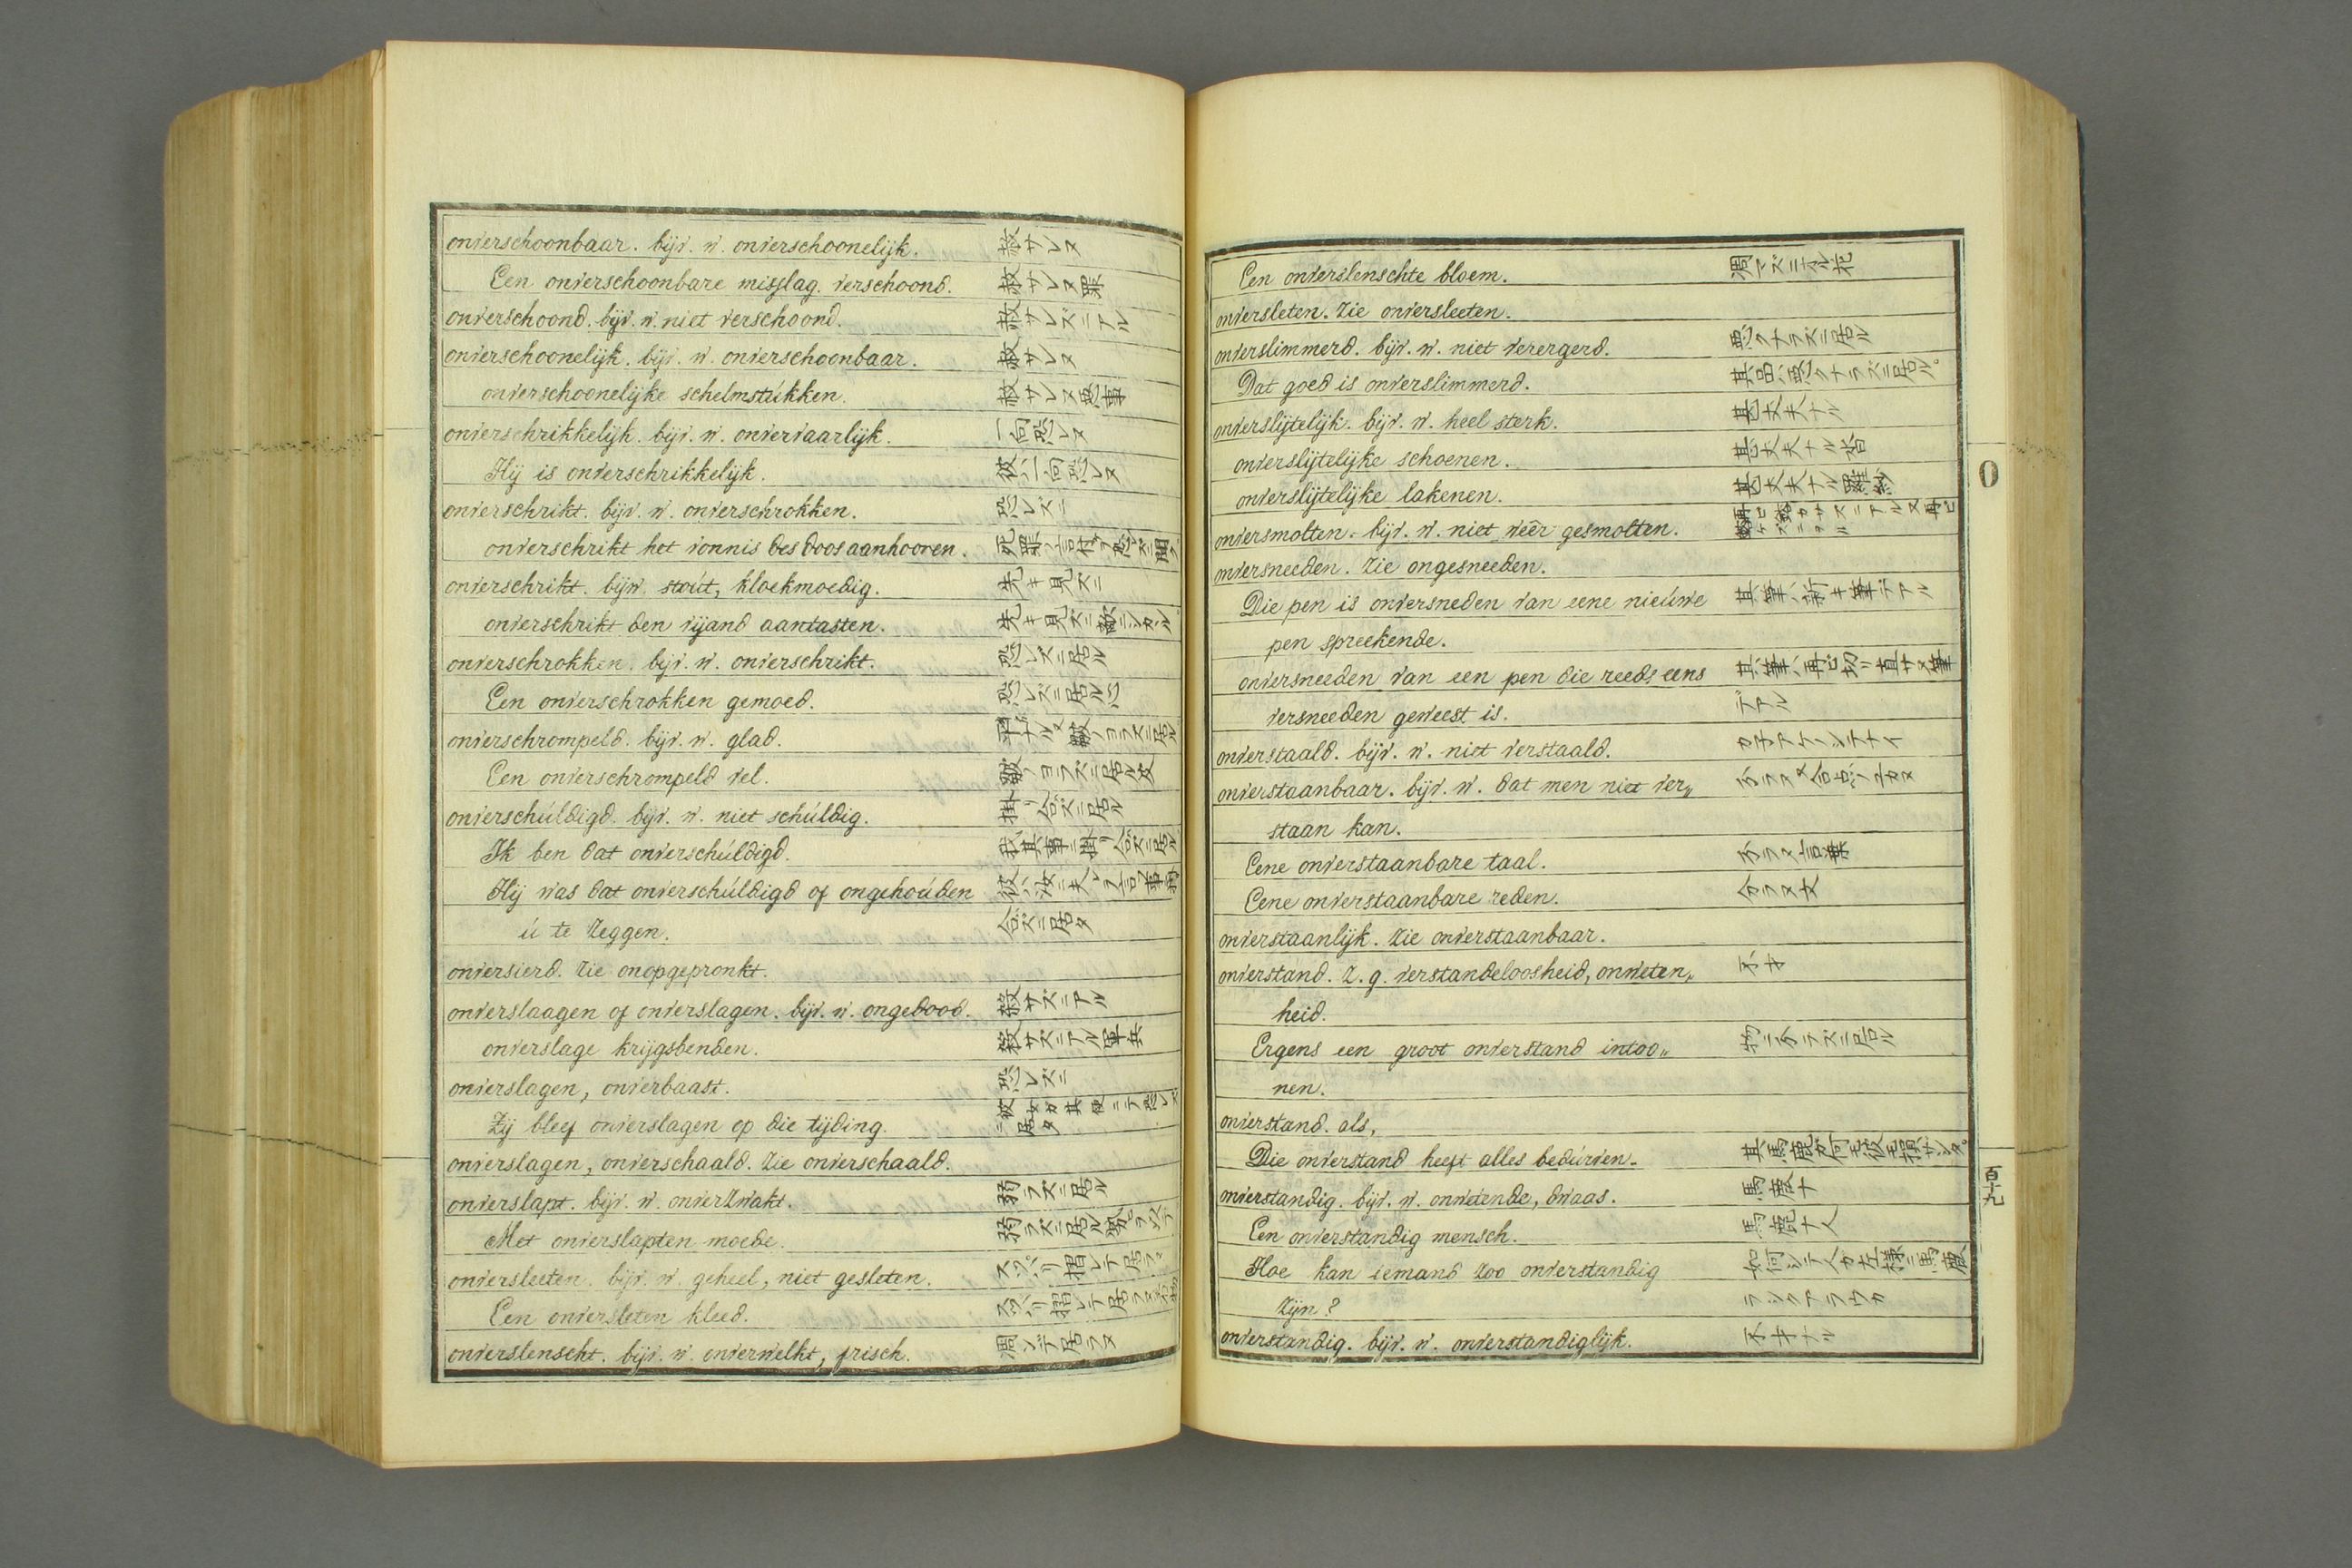 onverschoonbaar. bijv. w. onverschoonelijk. 赦サレヌ
Een onverschoonbare misslag. verschoond. 赦サレヌ罪
onverschoond. bijv. w. niet verschoond. 赦サレズニアル
onverschoonelijk. bijv. w. onverschoonbaar. 赦サレヌ
onverschoonelijke schelmstúkken. 赦サレヌ悪事
onverschrikkelijk. bijv. w. onvervaarlijk. 一向恐レヌ
Hij is onverschrikkelijk. 彼ハ一向恐レヌ
onverschrikt. bijv. w. onverschrokken. 恐レズニ
onverschrikt het vonnis des doos aanhooren. 死罪ノ言付ヲ恐レズニ聞ク
onverschrikt. bijw. stoút, kloekmoedig. 先キ見ズニ
onverschrikt den vijand aantasten. 先キ見ズニ敵ニシカル
onverschrokken. bijv. w. onverschrikt. 恐レズニ居ル
Een onverschrokken gemoed. 恐レズニ居ル心
onverschrompeld. bijv. w. glad. 皺ノヨラズニ居ル
Een onverschrompeld vel. 皺ノヨラズニ居ル皮
onverschúldigd. bijv. w. niet schúldig. 掛リ合ズニ居ル
Ik ben dat onverschúldigd. 我其事ニ掛リ合ズニ居ル
Hij was dat onverschúldigd of ongehoúden
ú te zeggen. 合ズニ居タ
onversierd. zie onopgepronkt.
onverslaagen of onverslagen. bijv. w. ongedood. 殺サズニアル
onverslage krijgsbenden. 殺サズニアル軍兵
onverslagen, onverbaast. 恐レズニ
Zij bleef onverslagen op die tijding. 彼女カ其便ニテ恐レズニ居タ
onverslagen, onverschaald. zie onverschaald.
onverslapt. bijv. w. onverzwakt. 弱ラズニ居ル
Met onverslapten moede. 弱ラズニ居ル
onversleeten. bijv. w. geheel, niet gesleten. スッパリ摺レテ居ラヌ
Een onversleten kleed. スッパリ摺レテ居ラヌ
onverslenscht. bijv. w. onverwelkt, frisch. 凋レテ居ラヌ
Een onverslenschte bloem. 凋マズニアル花
onversleten. zie onversleeten.
onverslimmerd. bijv. w. niet verergerd. 悪クナラズニ居ル
Dat goed is onverslimmerd. 其品ハ悪クナラズニ居ル。
onverslijtelijk. bijv. w. heel sterk. 甚丈夫ナル
onverslijtelijke schoenen. 甚丈夫ナル沓
onverslijtelijke lakenen. 甚丈夫ナル羅紗
onversmolten. bijv. w. niet wêêr gesmolten.
onversneeden. zie ongesneeden.
Die pen is onversneden van eene nieúwe 其筆ハ新キ筆デアル
pen spreekende.
onversneeden van een pen die reeds eens 其筆ハ再ビ切リ直サヌ筆
versneeden geweest is. デアル
onverstaald. bijv. w. niet verstaald.
onverstaanbaar. bijv. w. dat men niet ver„
staan kan.
Eene onverstaanbare taal. 分ラヌ言葉
Eene onverstaanbare reden. 分ラヌ文
onverstaanlijk. zie onverstaanbaar.
onverstand. z. g. verstandeloosheid, onweten„ 不才
heid.
Ergens een groot onverstand intoo„ 物ニ分ラズニ居ル
nen.
onverstand. als,
Die onverstand heeft alles bedúrven. 其馬鹿カ何モ彼モ損サシタ。
onverstandig. bijv. w. onwetende, dwaas. 馬鹿ナ
Een onverstandig mensch. 馬鹿ナ人
Hoe kan iemand zoo onverstandig 如何シテ人カ左様ニ馬鹿
zijn? ラシクアラウカ
onverstandig. bijv. w. onverstandiglijk. 不才ナル
O
百十九